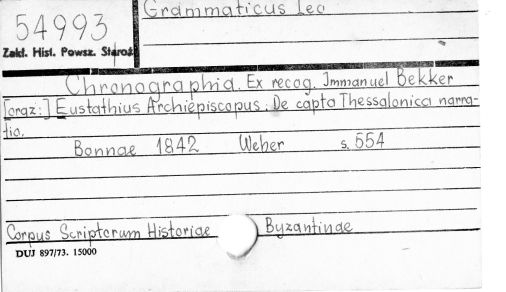 Grammaticus Leo
54993
Zakł. Hist. Powsz. Staroż
Chronographia. Ex recog. Immanuel Bekker
[oraz:] Eustathius Archiepiscopus: De capta Thessalonica narra-
tio.
Bonnae 1842 Weber s. 554
Corpus Scriptorum Historiae Byzantinae
DUJ 897/73. 15000